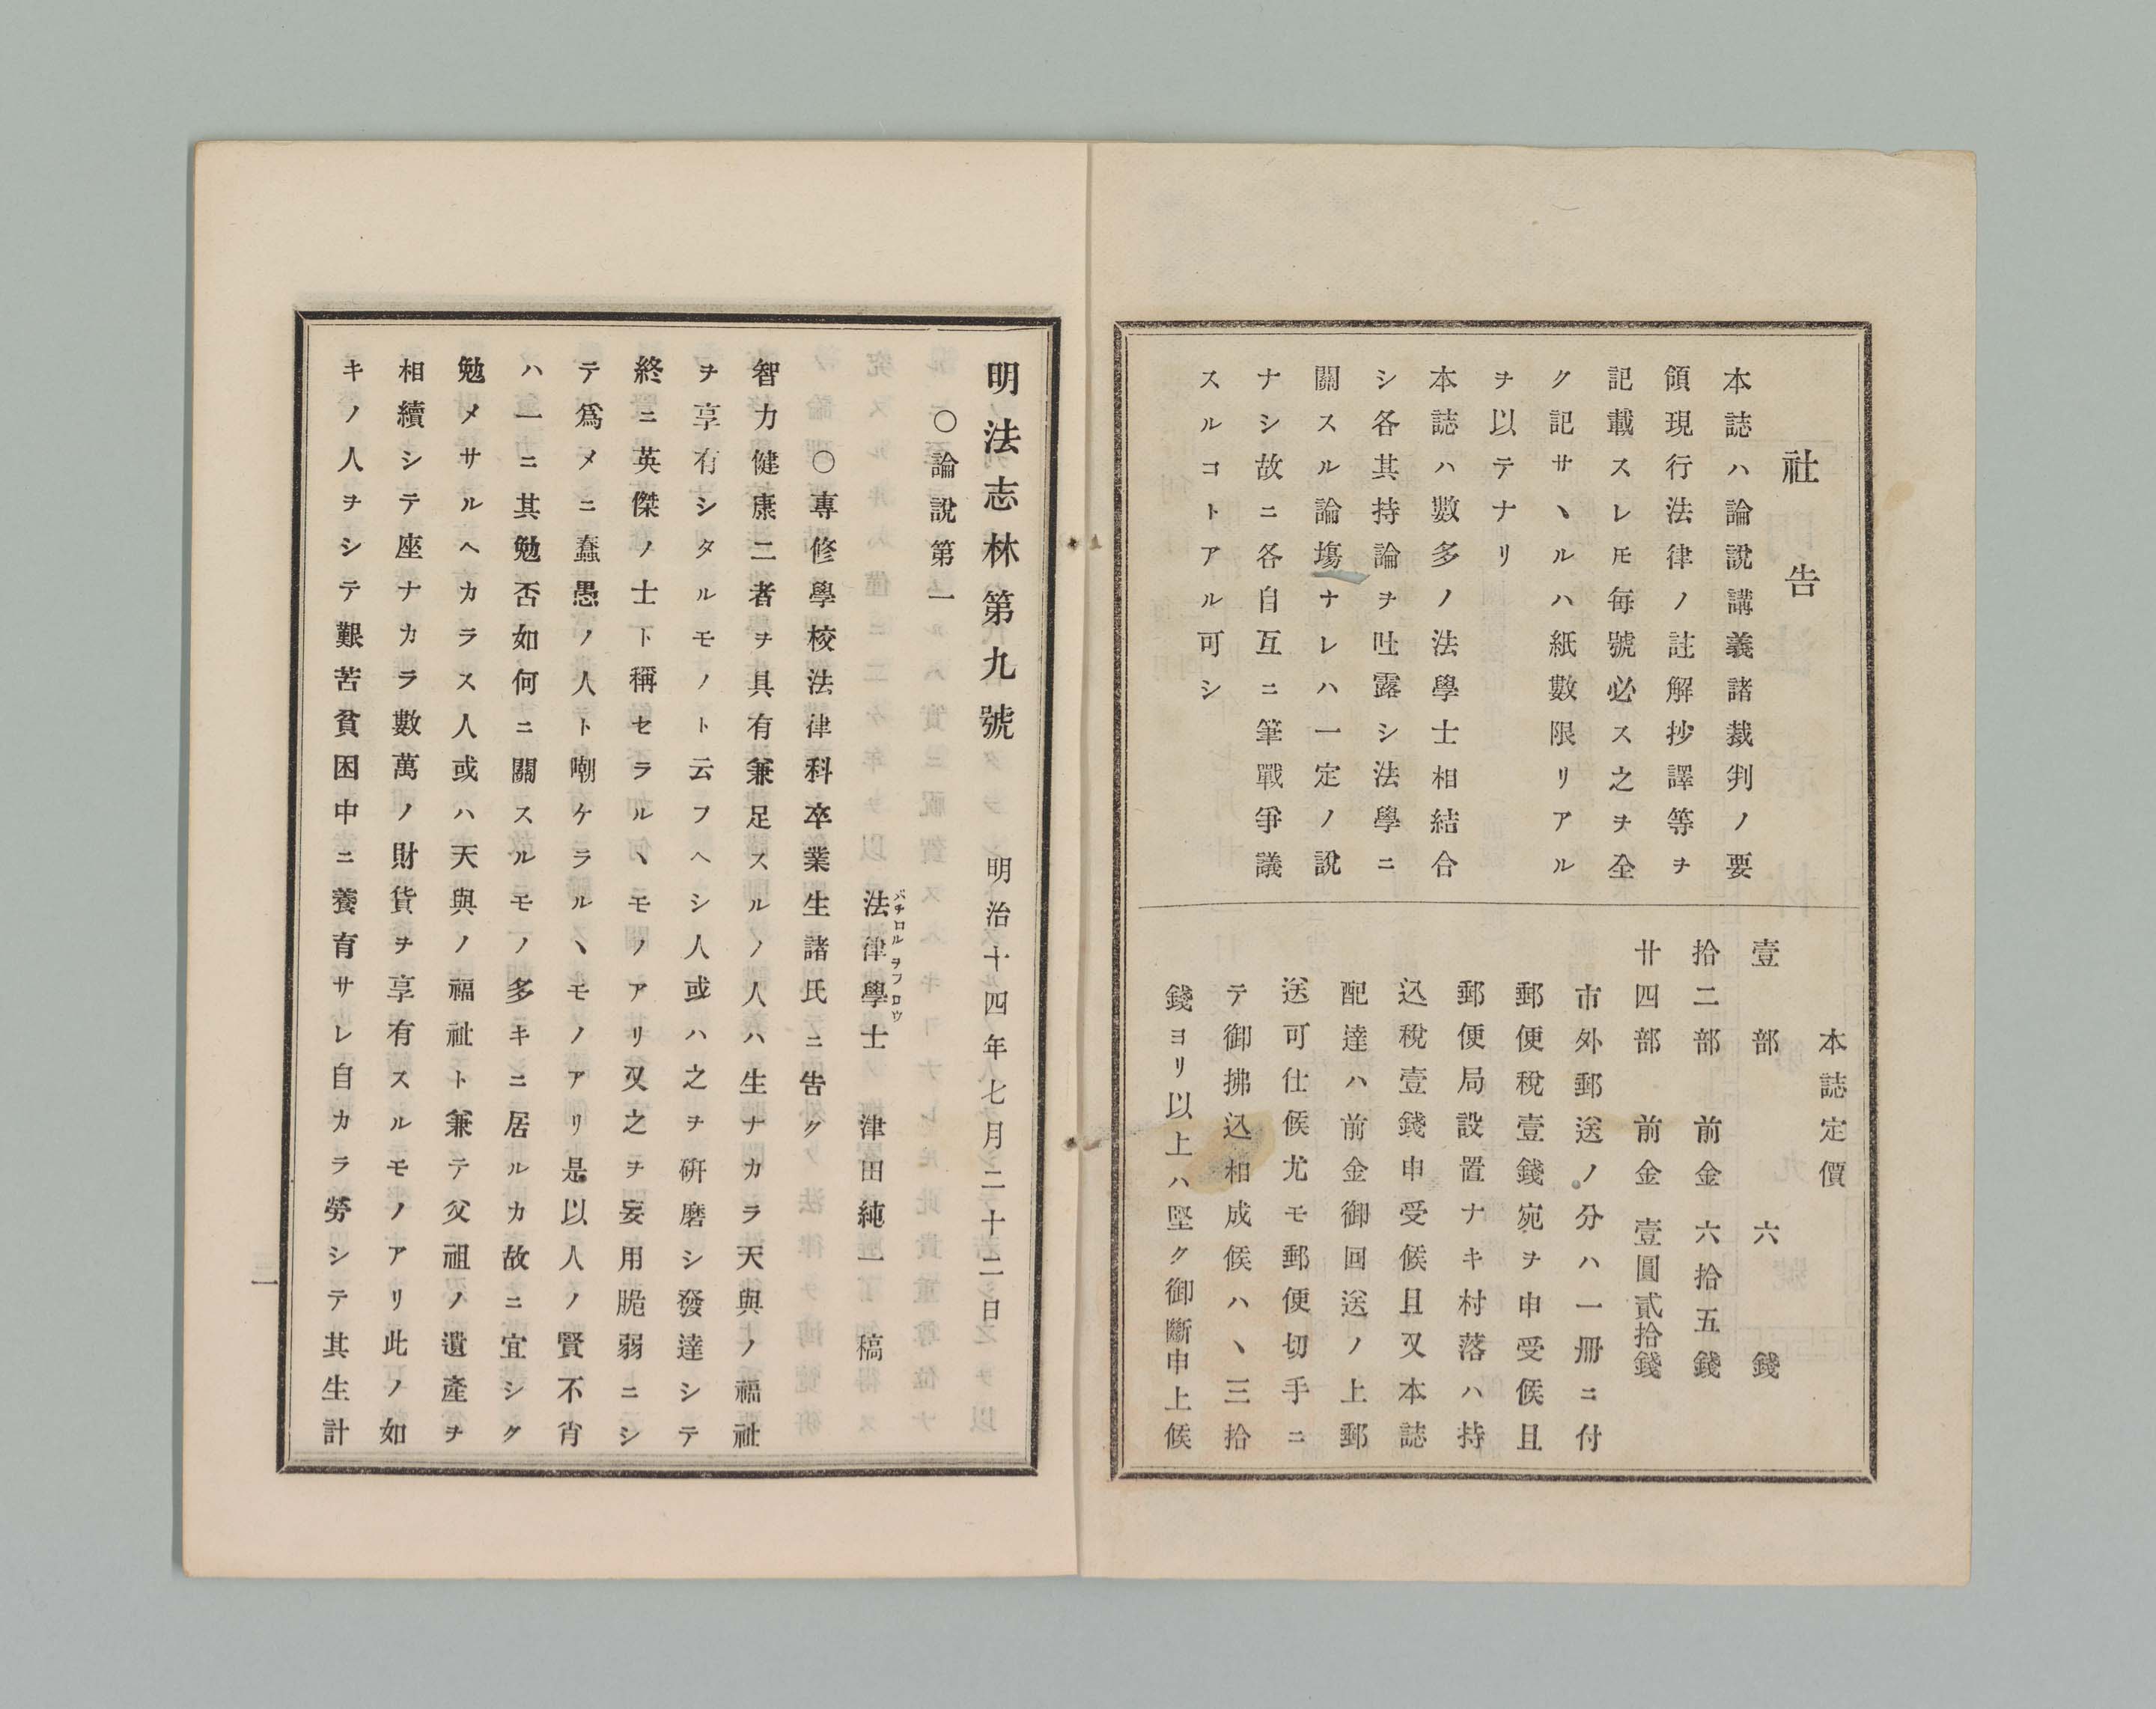 社告
本誌ハ論說講義諸裁判ノ要
領現行法律ノ註解抄譯等ヲ
記載スレㇳモ每號必ス之ヲ全
ク記サヽルハ紙數限リアル
ヲ以テナリ
本誌ハ數多ノ法學士相結合
シ各其持論ヲ吐露シ法學ニ
關スル論塲ナレハ一定ノ說
ナシ故ニ各自互ニ筆戰爭議
スルコトアル可シ
本誌定價
壹部 六錢
拾二部 前金 六拾五錢
廿四部 前金 壹圓貳拾錢
市外郵送ノ分ハ一冊ニ付
郵便稅壹錢宛ヲ申受候且
郵便局設置ナキ村落ハ持
込稅壹錢申受候且又本誌
配達ハ前金御回送ノ上郵
送可仕候尤モ郵便切手ニ
テ御拂込相成候ハヽ三拾
錢ヨリ以上ハ堅ク御斷申上候
明法志林第九號 明治十四年七月二十二日
〇論說第一
法律學士 津田純一 稿
バチロルヲフロウ
〇專修學校法律科卒業生諸氏ニ告ク
智力健康二者ヲ具有兼足スルノ人ハ生ナカラ天與ノ福祉
ヲ享有シタルモノト云フヘシ人或ハ之ヲ硏磨シ發達シテ
終ニ英傑ノ士ト稱セラルヽモノアリ又之ヲ妄用脆弱ニシ
テ爲メニ蠢愚ノ人ト嘲ケラルヽモノアリ是以人ノ賢不肖
ハ一ニ其勉否如何ニ關スルモノ多キニ居ルカ故ニ宜シク
勉メサルヘカラス人或ハ天與ノ福祉ト兼テ父祖ノ遺產ヲ
相續シテ座ナカラ數萬ノ財貨ヲ享有スルモノアリ此ノ如
キノ人ヲシテ艱苦貧困中ニ養育サレ自カラ勞シテ其生計
一